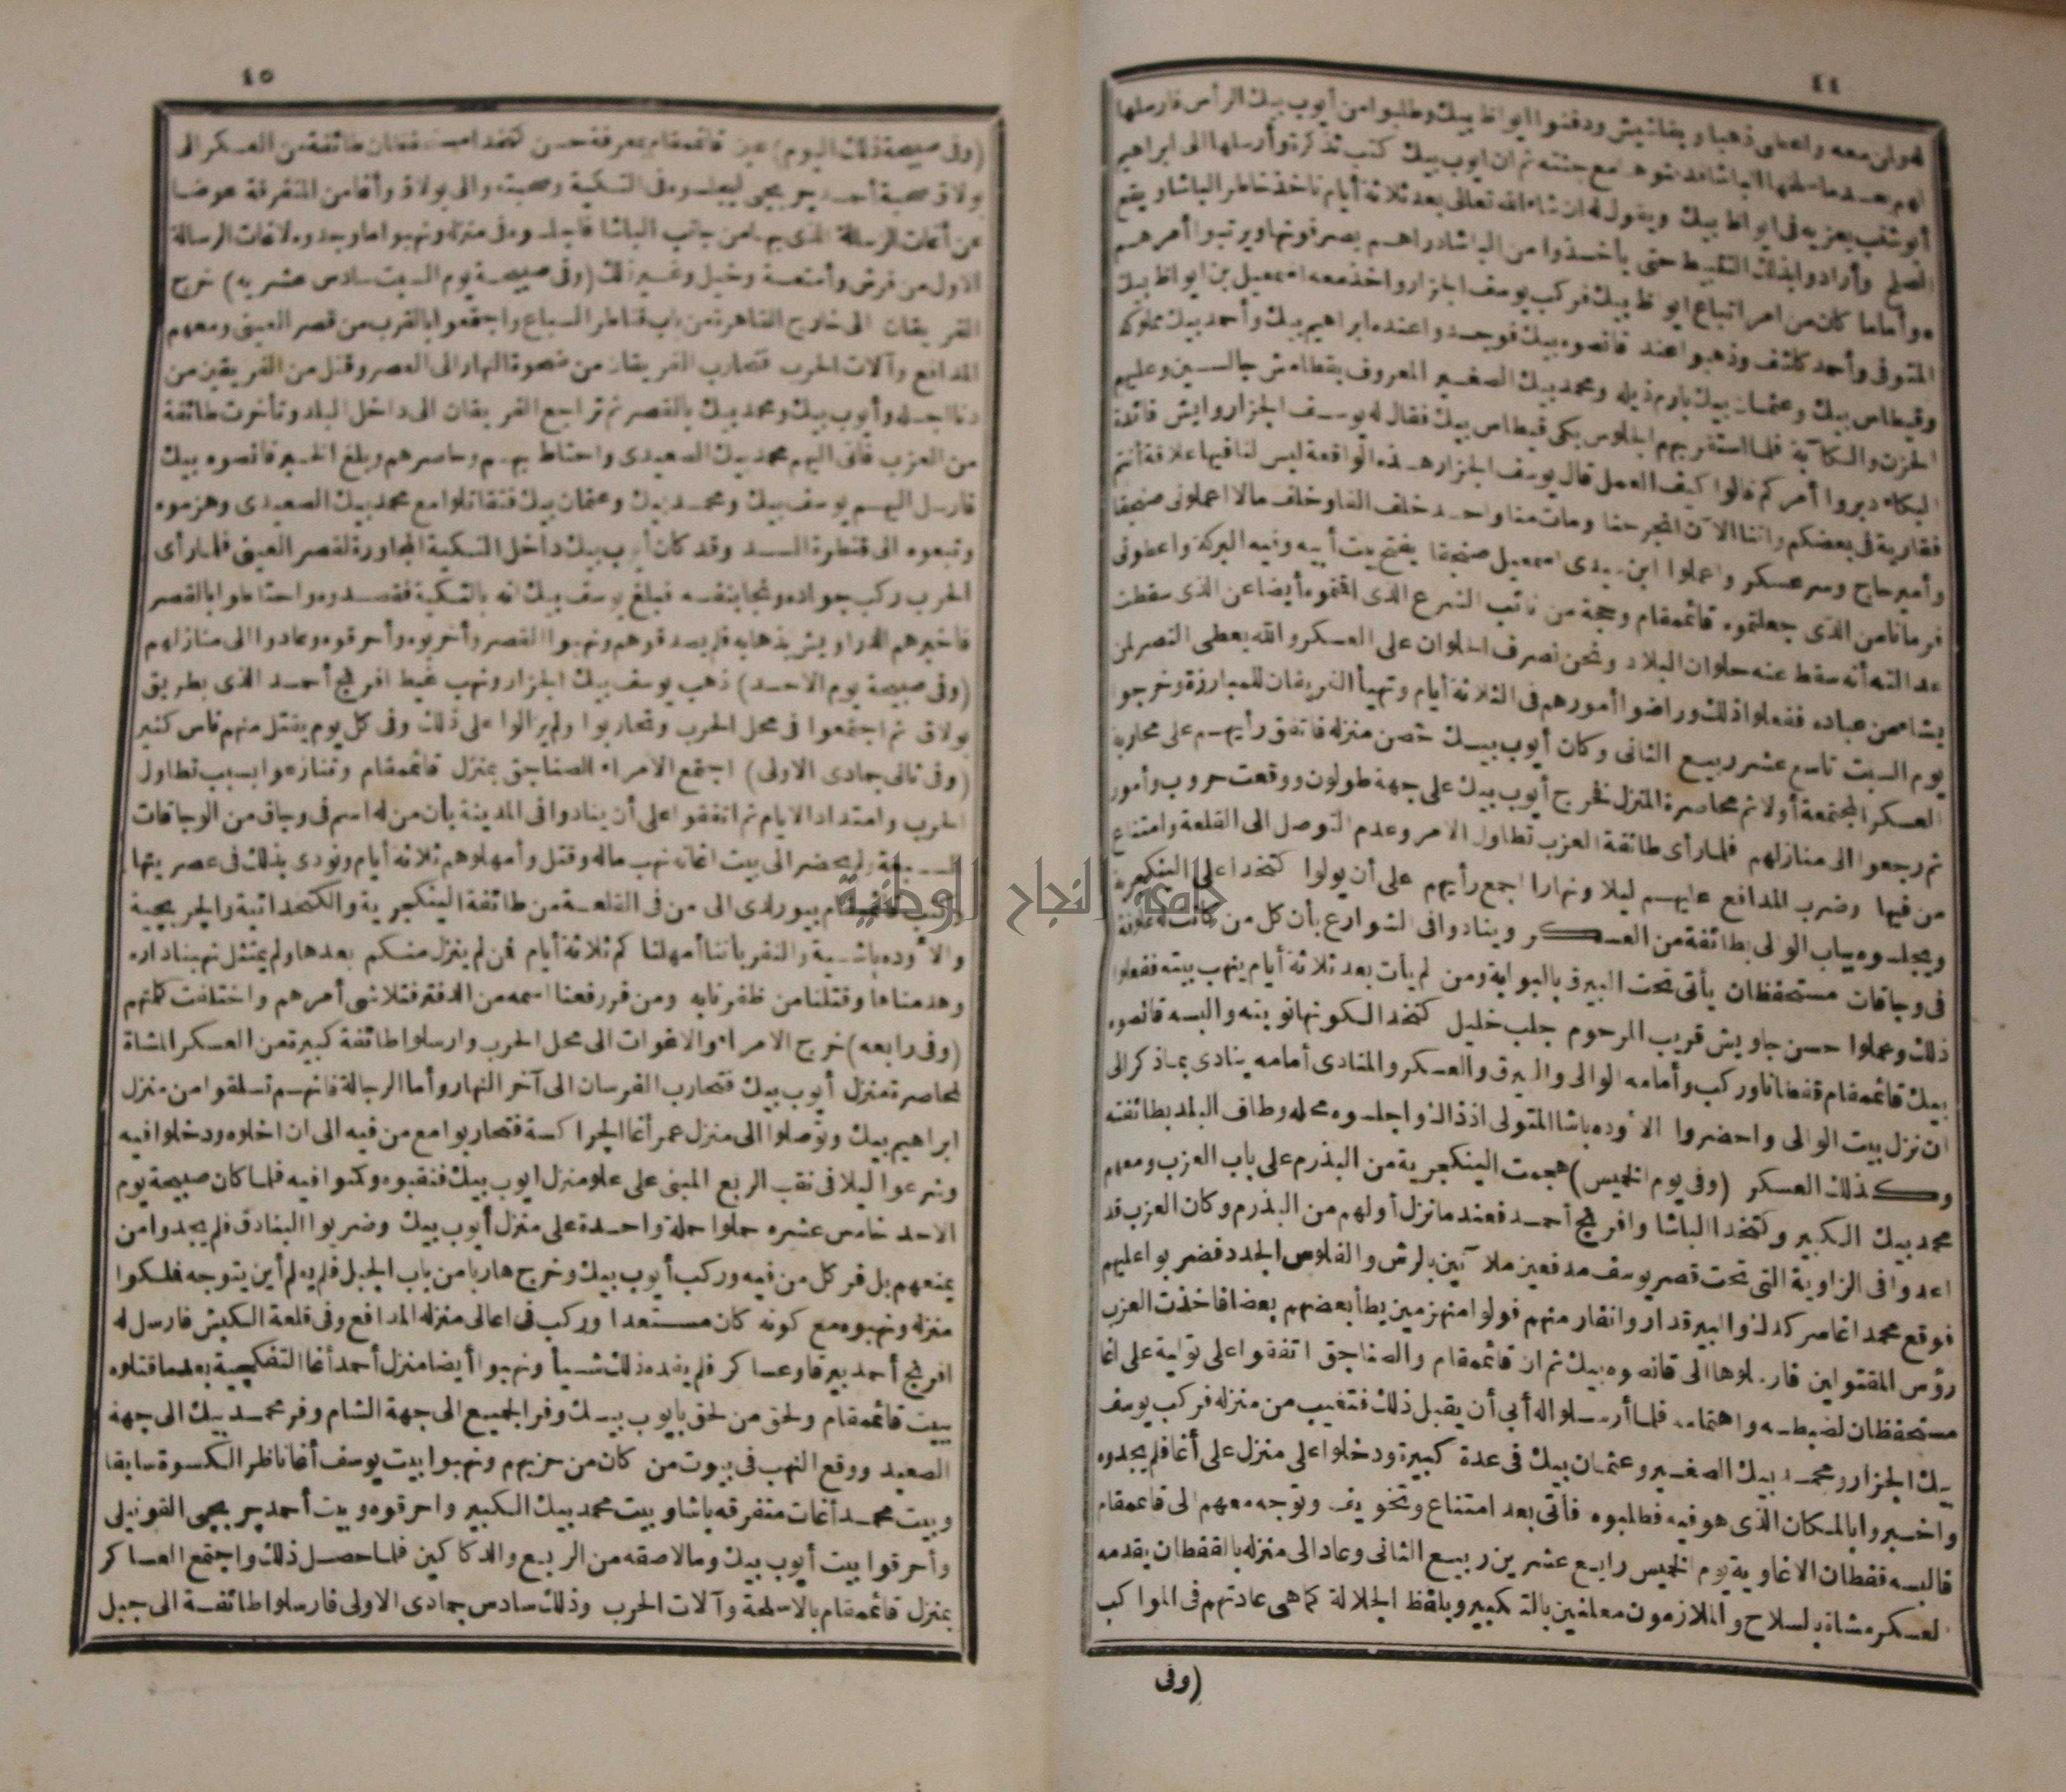 ٤٤
لهولن معه واعطى ذهبا وبقاشيش ودفنوا ايواظ بيك وطلبوا من أيوب بيك الرأس فارسلها
لهم بعد ما سلخها الباشا فدفنوها مع جثته ثم ان ايوب بيك كتب تذكرة وأرسلها الى ابراهيم
أبو شنب يعزيه فى ايواظ بيك ويقول له ان شاء الله تعالى بعد ثلاثة أيام ناخذ خاطر الباشا ويقع
الصلح وأرادوا بذلك التثبيط حتى يأخذوا من الباشا دراهم يصرفونها ويرتبوا أمرهم
* وأما ما كان من امر اتباع ايواظ بيك فركب يوسف الجزار واخذ معه اسمعيل بن ايواظ بيك
المتوفى وأحمد كاشف وذهبوا عند قانصوه بيك فوجدوا عنده ابراهيم بيك وأحمد بيك مملوكه
وقيطاس بيك وعثمان بيك بارم ذيله ومحمد بيك الصغير المعروف بقطامش جالسين وعليهم
الحزن والكآبة فلما استقر بهم الجلوس بكى قيطاس بيك فقال له يوسف الجزار وايش فائدة
البكاء دبروا أمركم قالوا كيف العمل قال يوسف الجزار هذه الواقعة ليس لنا فيها علاقة أنتم
فقارية فى بعضكم واننا الآن انجرحنا ومات منا واحد خلف الفا وخلف مالا اعملونى صنجقا
وأمير حاج وسر عسكر واعملوا ابن سيدى اسمعيل صنجقا يفتح بيت أبيه وفيه البركة واعطونى
فرمانا من الذى جعلتموه قائمقام وحجة من نائب الشرع الذى اقتموه أيضا عن الذى سقطت
عدالته أنه سقط عنه حلوان البلاد ونحن نصرف الحلوان على العسكر والله يعطى النصر لمن
يشاء من عباده ففعلوا ذلك وراضوا أمورهم فى الثلاثة أيام وتهيأ الفريقان للمبارزة وخرجوا
يوم السبت تاسع عشر ربيع الثانى وكان أيوب بيك حصن منزله فاتفق رأيهم على محاربة
العسكر المجتمعة أولا ثم محاصرة المنزل فخرج أيوب بيك على جهة طولون ووقعت حروب وأمور
ثم رجعوا الى منازلهم فلما رأى طائفة العزب تطاول الامر وعدم التوصل الى القلعة وامتناع
من فيها وضرب المدافع عليهم ليلا ونهارا اجمع رأيهم على أن يولوا كتخدا على الينكجرية
ويجلسوه بباب الوالى بطائفة من العسكر وينادوا فى الشوارع بأن كل من كانت له علوفة
فى وجاقات مستحفظان يأتى تحت البيرق بالبوابة ومن لم يأت بعد ثلاثة أيام ينهب بيته ففعلوا
ذلك وعملوا حسن جاويش قريب المرحوم جلب خليل كتخدا لكونها نوبته والبسه قانصوه
بيك قائمقام قفطانا وركب وأمامه الوالى والبيرق والعسكر والمنادى أمامه ينادى بما ذكر الى
ان نزل بيت الوالى واحضروا الاوده باشا المتولى اذذاك واجلسوه محله وطاف البلد بطائفته
وكذلك العسكر (وفى يوم الخميس) هجمت الينكجرية من البذرم على باب العزب ومعهم
محمد بيك الكبير وكتخدا الباشا وافرنج أحمد فعندما نزل أولهم من البذرم وكان العزب قد
اعدوا فى الزاوية التى تحت قصر يوسف مدفعين ملآنين بالرش والفلوس الجدد فضربوا عليهم
فوقع محمد اغا سركدك والبيرقدار وانفار منهم فولوا منهزمين يطأ بعضهم بعضا فاخذت العزب
رؤس المقتولين فارسلوها الى قانصوه بيك ثم ان قائمقام والصناجق اتفقوا على تولية على اغا
مستحفظان لضبطه واهتمامه فلما أرسلوا له أبى أن يقبل ذلك فتغيب من منزله فركب يوسف
بيك الجزار ومحمد بيك الصغير وعثمان بيك فى عدة كبيرة ودخلوا على منزل على أغا فلم يجدوه
واخبروا بالمكان الذى هو فيه فطلبوه فأتى بعد امتناع وتخويف وتوجه معهم الى قائمقام
فالبسه قفطان الاغاوية يوم الخميس رابع عشرين ربيع الثانى وعاد الى منزله بالقفطان يقدمه
العسكر مشاة بالسلاح والملازمون معلنين بالتكبير وبلفظ الجلالة كما هى عادتهم فى المواكب
(وفى
٤٥
(وفى صبيحة ذلك اليوم) عين قائمقام بمعرفة حسن كتخدا مستحفظان طائفة من العسكر الى
بولاق صحبة أحمد جربجى ليجلسوه فى التكية وصحبته والى بولاق وأغا من المتفرقة عوضا
عن أغات الرسالة الذى بها من جانب الباشا فاجلسوه فى منزله ونهبوا ما وجدوه لاغات الرسالة
الاول من فرش وأمتعة وخيل وغير ذلك (وفى صبيحة يوم السبت سادس عشريه) خرج
الفريقان الى خارج القاهرة من باب قناطر السباع واجتمعوا بالقرب من قصر العينى ومعهم
المدافع وآلات الحرب فتحارب الفريقان من ضحوة النهار الى العصر وقتل من الفريقين من
دنا اجله وأيوب بيك ومحمد بيك بالقصر ثم تراجع الفريقان الى داخل البلد وتأخرت طائفة
من العزب فأتى اليهم محمد بيك الصعيدى واحتاط بهم وحاصرهم وبلغ الخبر قانصوه بيك
فارسل اليهم يوسف بيك ومحمد بيك وعثمان بيك فتقاتلوا مع محمد بيك الصعيدى وهزموه
وتبعوه الى قنطرة السد وقد كان أيوب بيك داخل التكية المجاورة لقصر العينى فلما رأى
الحرب ركب جواده ونجا بنفسه فبلغ يوسف بيك انه بالتكية فقصدوه واحتاطوا بالقصر
فاخبرهم الدراويش بذهابه فلم يصدقوهم ونهبوا القصر وأخربوه وأحرقوه وعادوا الى منازلهم
(وفى صبيحة يوم الاحد) ذهب يوسف بيك الجزار ونهب غيط افرنج أحمد الذى بطريق
بولاق ثم اجتمعوا فى محل الحرب وتحاربوا ولم يزالوا على ذلك وفى كل يوم يقتل منهم ناس كثير
(وفى ثانى جمادى الاولى) اجتمع الامراء الصناجق بمنزل قائمقام وتنازعوا بسبب تطاول
الحرب وامتداد الايام ثم اتفقوا على أن ينادوا فى المدينة بأن من له اسم فى وجاق من الوجاقات
السبعة ولم يحضر الى بيت اغاته نهب ماله وقتل وأمهلوهم ثلاثة أيام ونودى بذلك فى عصريتها
وكتب قائمقام بيورلدى الى من فى القلعة من طائفة الينكجرية والكتخدائية والجربجية
والاوده باشية والنفر بأننا أمهلناكم ثلاثة أيام فمن لم ينزل منكم بعدها ولم يمتثل نهبنا داره
وهدمناها وقتلنا من ظفرنا به ومن فر رفعنا اسمه من الدفتر فتلاشى أمرهم واختلفت كلمتهم
(وفى رابعه) خرج الامراء والاغوات الى محل الحرب وارسلوا طائفة كبيرة من العسكر المشاة
لمحاصرة منزل أيوب بيك فتحارب الفرسان الى آخر النهار وأما الرجالة فانهم تسلقوا من منزل
ابراهيم بيك وتوصلوا الى منزل عمر أغا الجراكسة فتحاربوا مع من فيه الى ان اخلوه ودخلوا فيه
وشرعوا ليلا فى نقب الربع المبنى على علو منزل ايوب بيك فنقبوه وكمنوا فيه فلما كان صبيحة يوم
الاحد خامس عشره حملوا حملة واحدة على منزل أيوب بيك وضربوا البنادق فلم يجدوا من
يمنعهم بل فر كل من فيه وركب أيوب بيك وخرج هاربا من باب الجبل فلم يعلم أين يتوجه فملكوا
منزله ونهبوه مع كونه كان مستعدا وركب فى اعالى منزله المدافع وفى قلعة الكبش فارسل له
افرنج أحمد بيرقا وعساكر فلم يفده ذلك شيأ ونهبوا أيضا منزل أحمد أغا التفكجية بعد ما قتلوه
ببيت قائمقام ولحق من لحق بايوب بيك وفر الجميع الى جهة الشام وفر محمد بيك الى جهة
الصعيد ووقع النهب فى بيوت من كان من حزبهم ونهبوا بيت يوسف أغا ناظر الكسوة سابقا
وبيت محمد أغات متفرقه باشا وبيت محمد بيك الكبير واحرقوه وبيت أحمد جربجى القونيلى
وأحرقوا بيت أيوب بيك وما لاصقه من الربع والدكاكين فلما حصل ذلك واجتمع العساكر
بمنزل قائمقام بالاسلحة وآلات الحرب وذلك سادس جمادى الاولى فارسلوا طائفة الى جبل
جامعة النجاح الوطنية